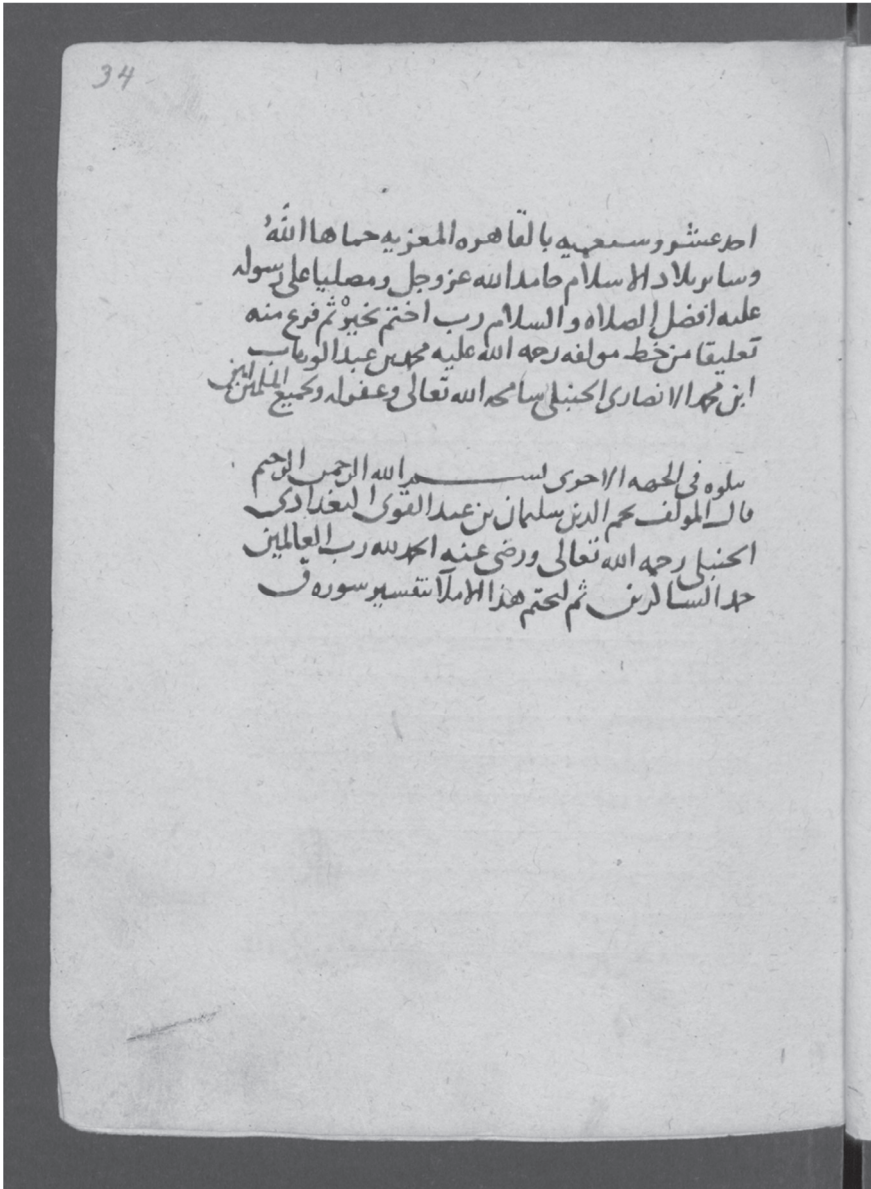 34
احد عشر وسبعميه بالقاهره المعزيه حماها اللهُ
وساير بلاد الاسلام حامدا لله عز وجل ومصليا على رسوله
عليه افضل الصلاه والسلام رب اختم بخيرْ ثم فرغ منه
تعليقا من خط مولفه رحمه الله عليه محمد بن عبد الوهاب
ابن محمد الانصارى الحنبلى سامحه الله تعالى وعفى له ولجميع المسلمين امين
يتلوه فى الجهه الاخرى بسم الله الرحمن الرحيم
قال المولف نجم الدين سليمان بن عبد القوى البغدادى
الحنبلى رحمه الله تعالى ورضى عنه الحمد لله رب العالمين
حمد الشاكرين ثم لنختم هذا الاملآ بتفسير سوره ق